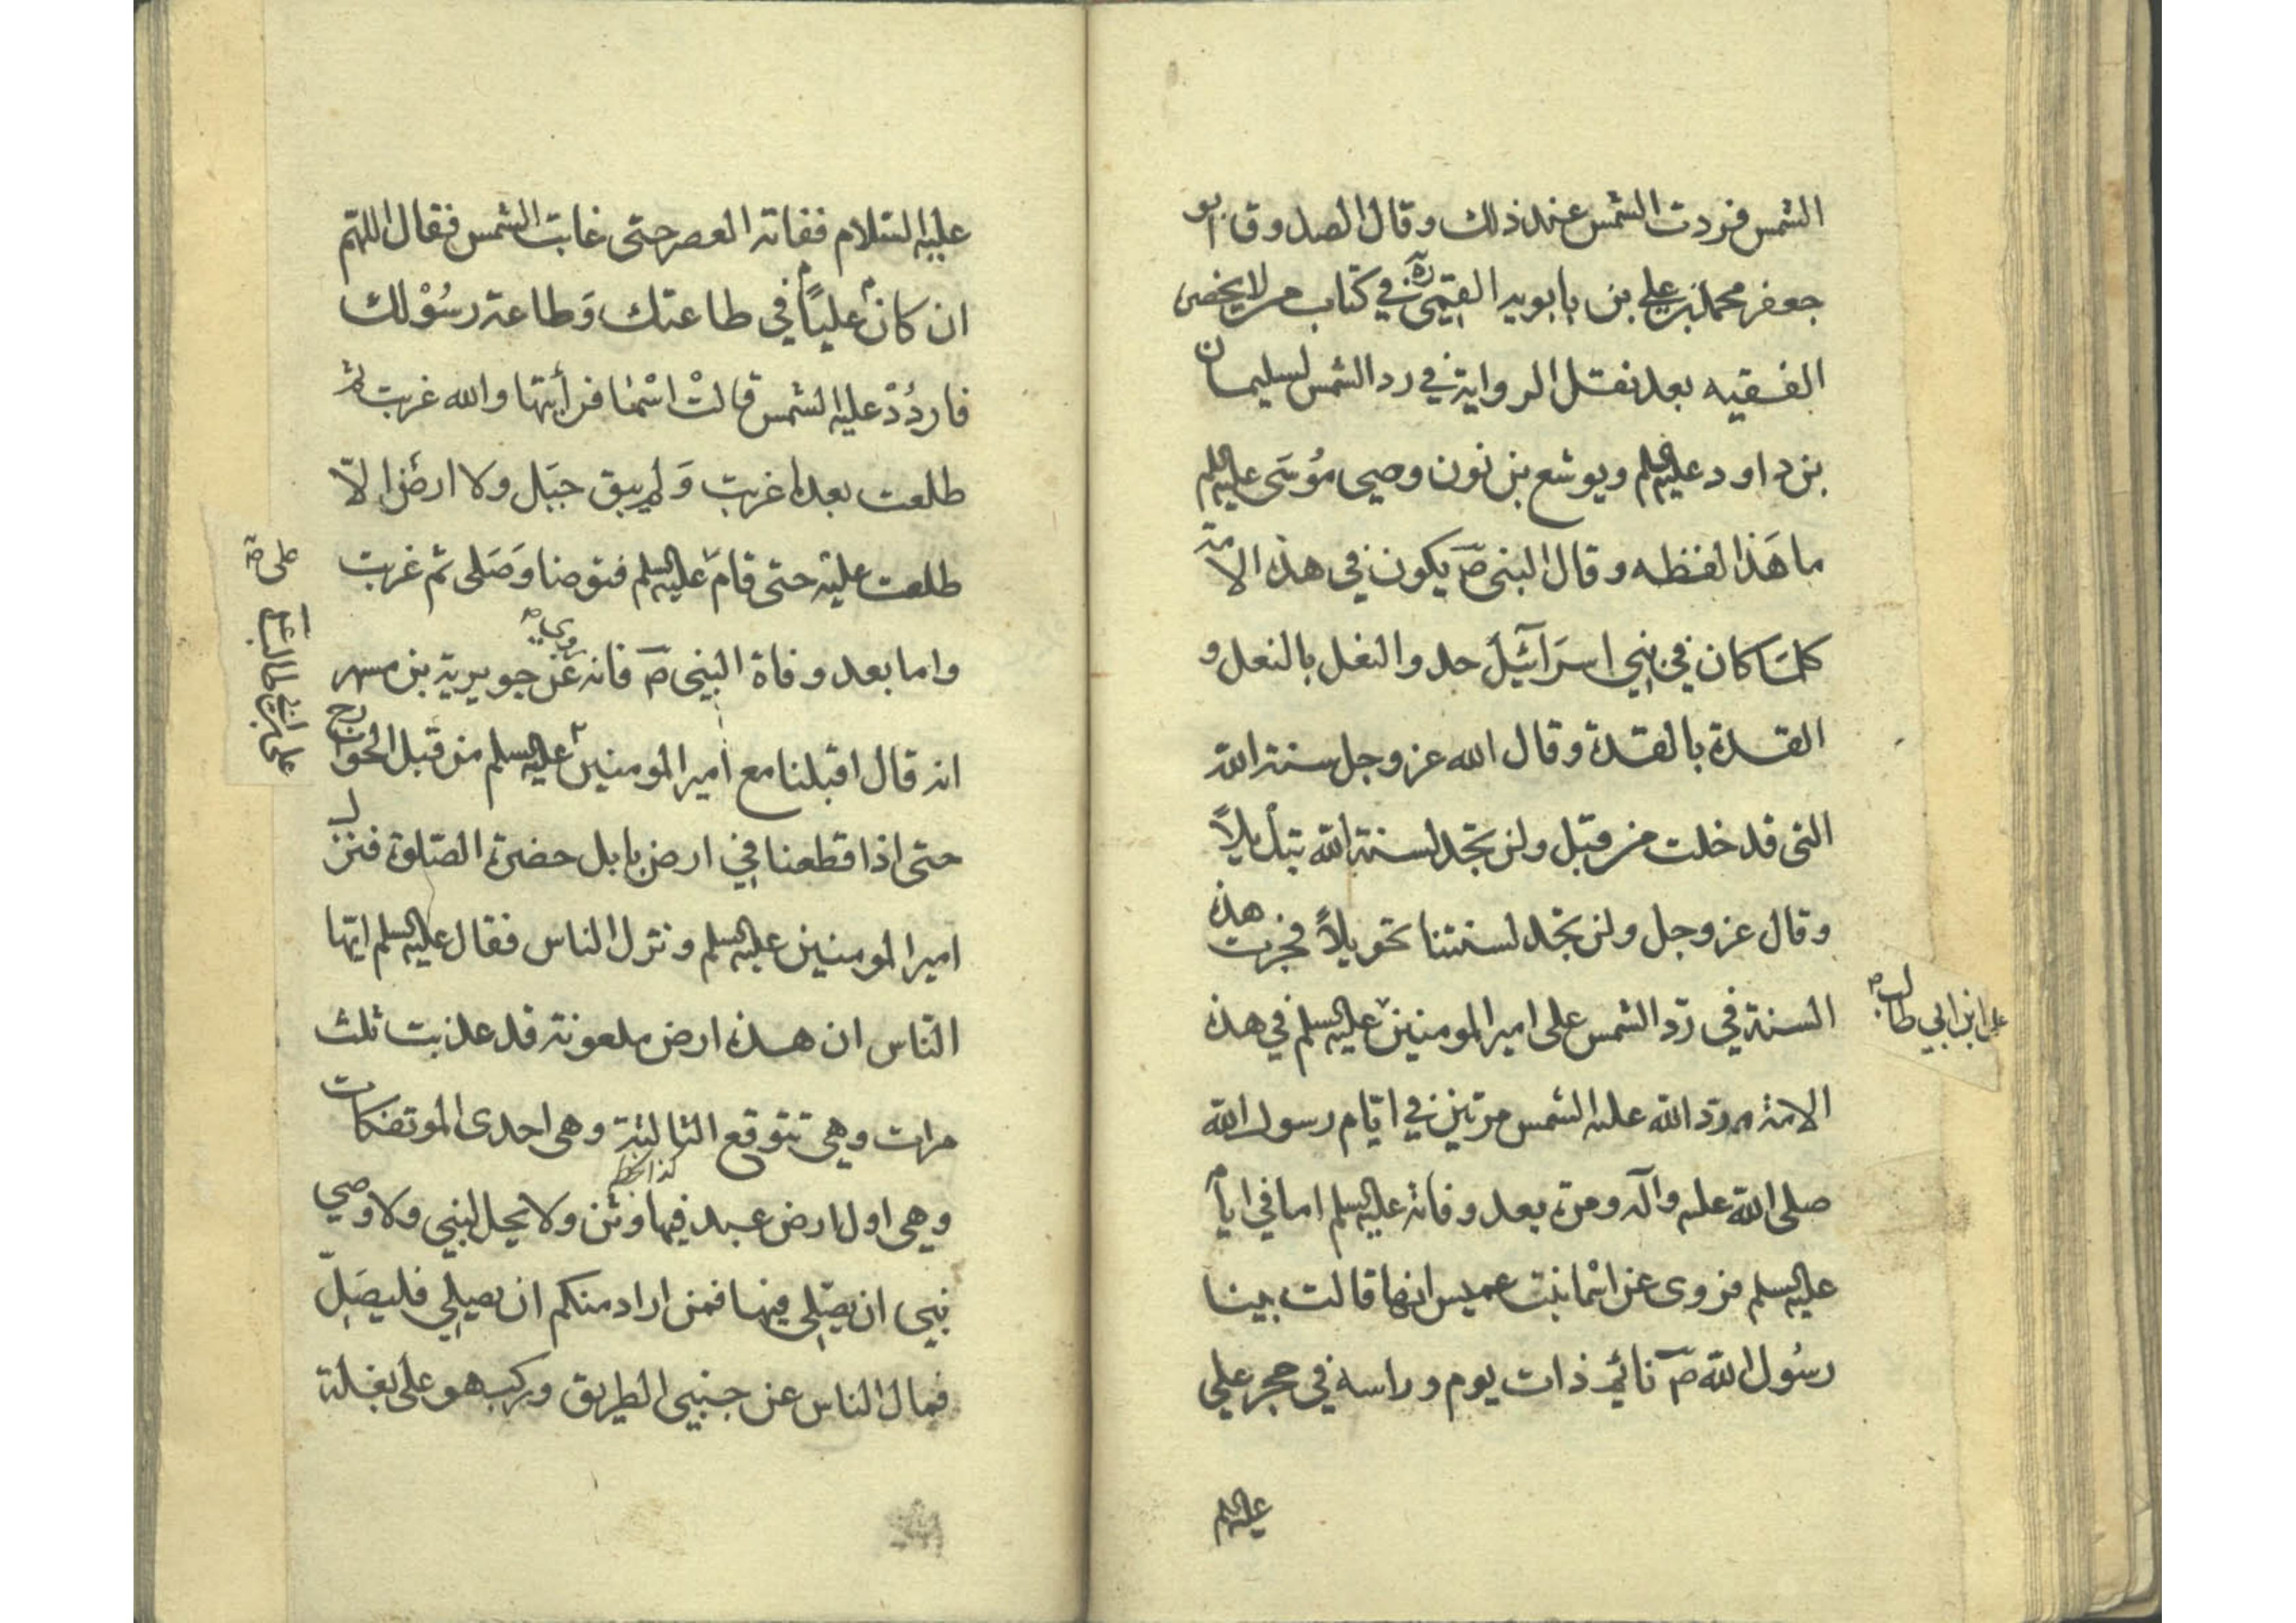 الشمس فردت الشمس عند ذلك وقال الصدوق ابو
جعفر محمد بن علي بن بابويه القمي ره في كتاب من لا يحضره
الفقيه بعد نقل الرواية في رد الشمس لسليمان
بن داود عليه السلم ويوشع بن نون وصي مُوسَى عليه السلم
ما هَذا لفظه وقال النبي صۤ يكون في هذه الامة
كلمّا كان في بني اسرَآئيلَ حذو النعل بالنعل و
القذة بالقذة وقال الله عز وجل سنة الله
التي قد خلت من قبل ولن تجد لسنة الله تبديلاً
وقال عز وجل ولن تجد لسنتنا تحويلاً فجرت هذه
السنة في ردّ الشمس على امير المومنين عليه السلم في هذه
علي ابن ابي طالب صح
الامة ورد الله عليه الشمس مرتين في ايّام رسول الله
صلى الله عليه وآله ومرة بعد وفاته عليه السلم اما في ايام
عليه السلم فروى عن اسْما بنت عميس انها قالت بينا
رسُول الله صۤ نائم ذات يوم وراسه في حجر علي
عليه السلم
عليه السّلام ففاته العصر حتى غابت الشمس فقال اللهمّ
ان كان عليّاً في طاعتك وَطاعة رسُوْلك
فاردُدْ عليه الشمس قالتْ اسْما فرأيتها والله غربت ثم
طلعت بعد ما غربت وَلم يبق جبَل ولا ارض الّا
طلعت عليه حتى قام عليه السلم فتوضا وَصَلى ثم غربت
واما بعد وفاة النبي صۤ فانه روي صح عن جويرية بن مسهر
انه قال اقبلنا مع امير المومنين عليه السلم من قبل الخوارج
علي بن ابي طالب
حتى اذا قطعنا في ارض بابل حضرة الصّلوة فنزل
امير المومنين عليه السلم ونزل الناس فقال عليه السلم ايّها
النّاس ان هذه ارض ملعونة قد عذبت ثلث
مرات وهي تتوقع الثالثة وهى احدى الموتفكات
كذا بخط
وهي اول ارض عبد فيها وثن ولا يحل لنبي ولا وصي
نبي ان يصّلي فيها فمن اراد منكم ان يصلي فليصَلّ
فمال الناس عن جنبي الطريق وركب هو على بغلة